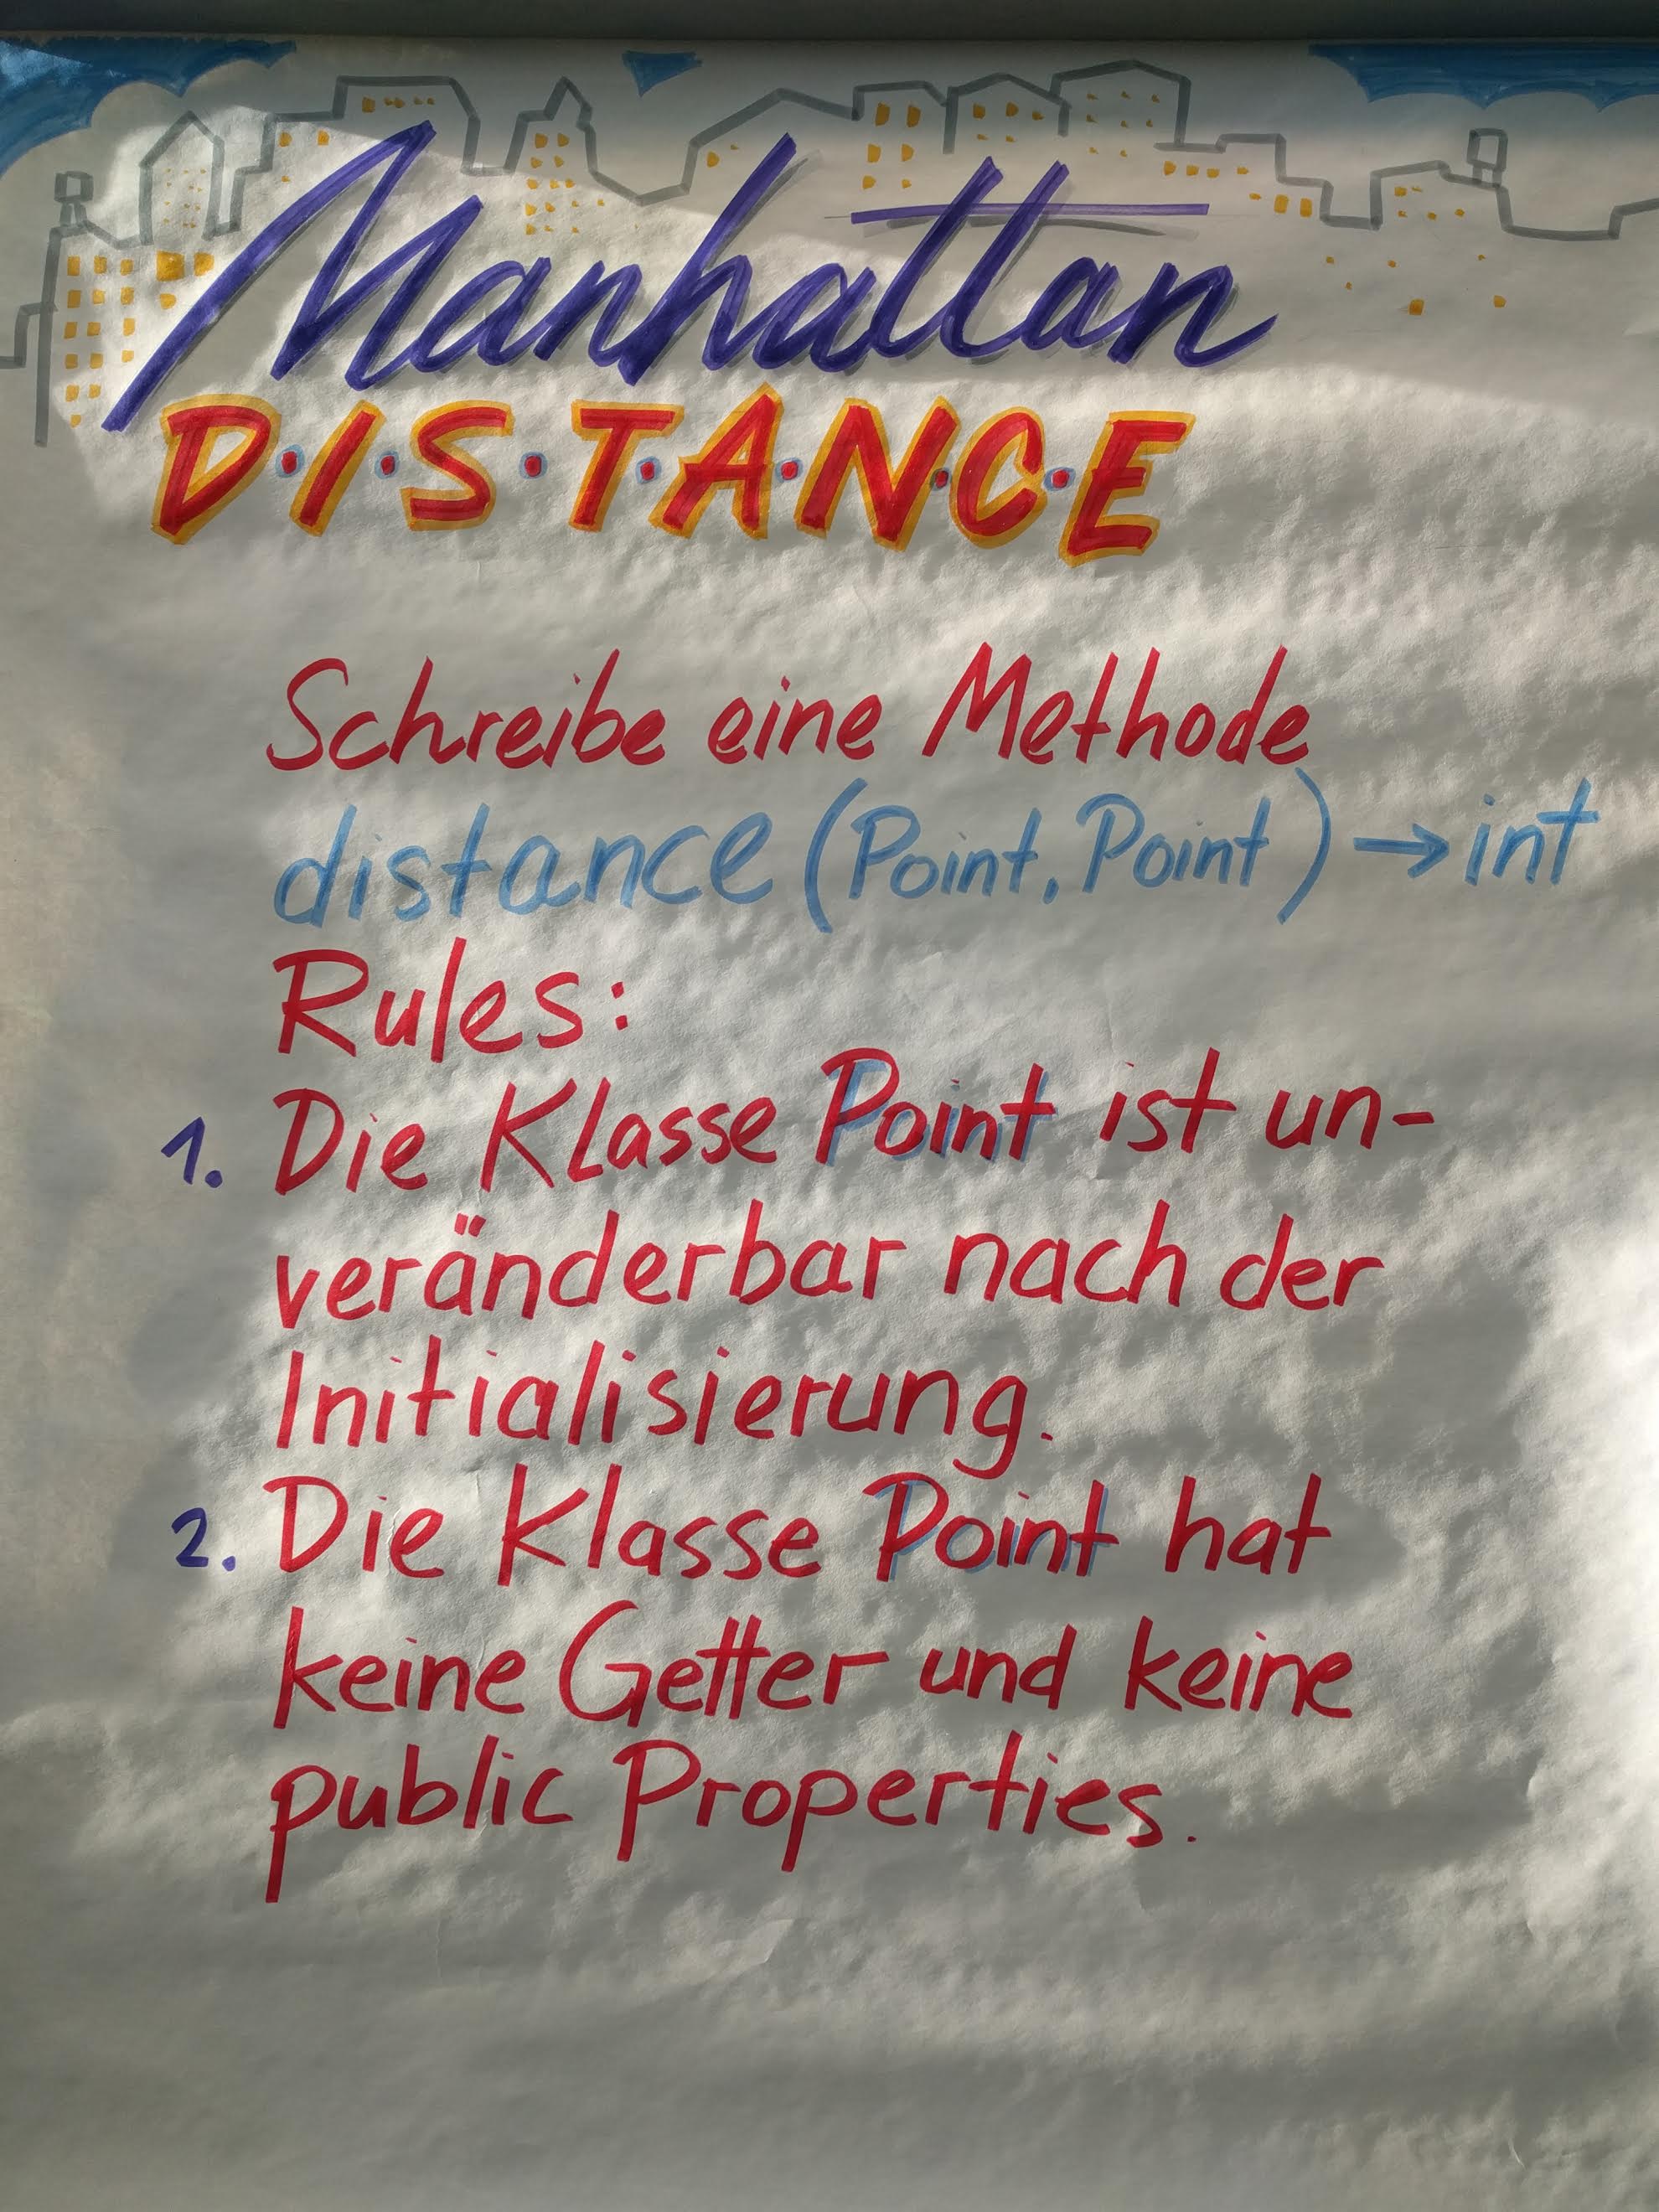 Manhattan
D·I·S·T·A·N·C·E
Schreibe eine Methode
distance (Point, Point) → int
Rules:
1. Die Klasse Point ist un-
veränderbar nach der
Initialisierung.
2. Die Klasse Point hat
keine Getter und keine
public Properties.